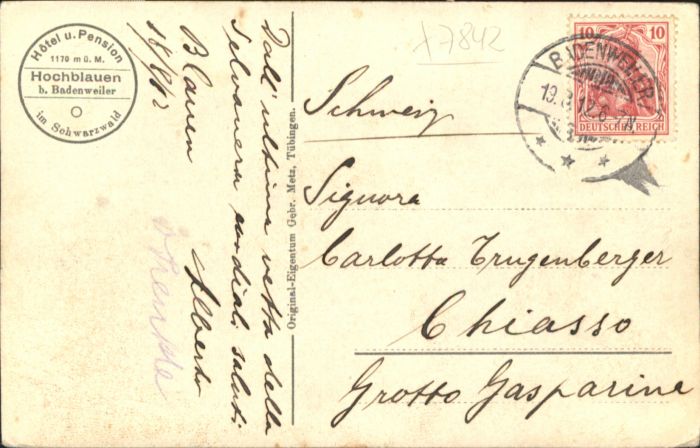 Hôtel u. Pension
1170 m ü. M.
Hochblauen
b. Badenweiler
im Schwarzwald
Blauen
18/8/12
Dall'ultima vetta della
Selvanera cordiali saluti
Alberto
Original-Eigentum Gebr. Metz, Tübingen.
x7842
10 10
DEUTSCHES REICH
BADENWEILER
19.8.12.6-7N.
Schweiz
Signora
Carlotta Trugenberger
Chiasso
Grotto Gasparine